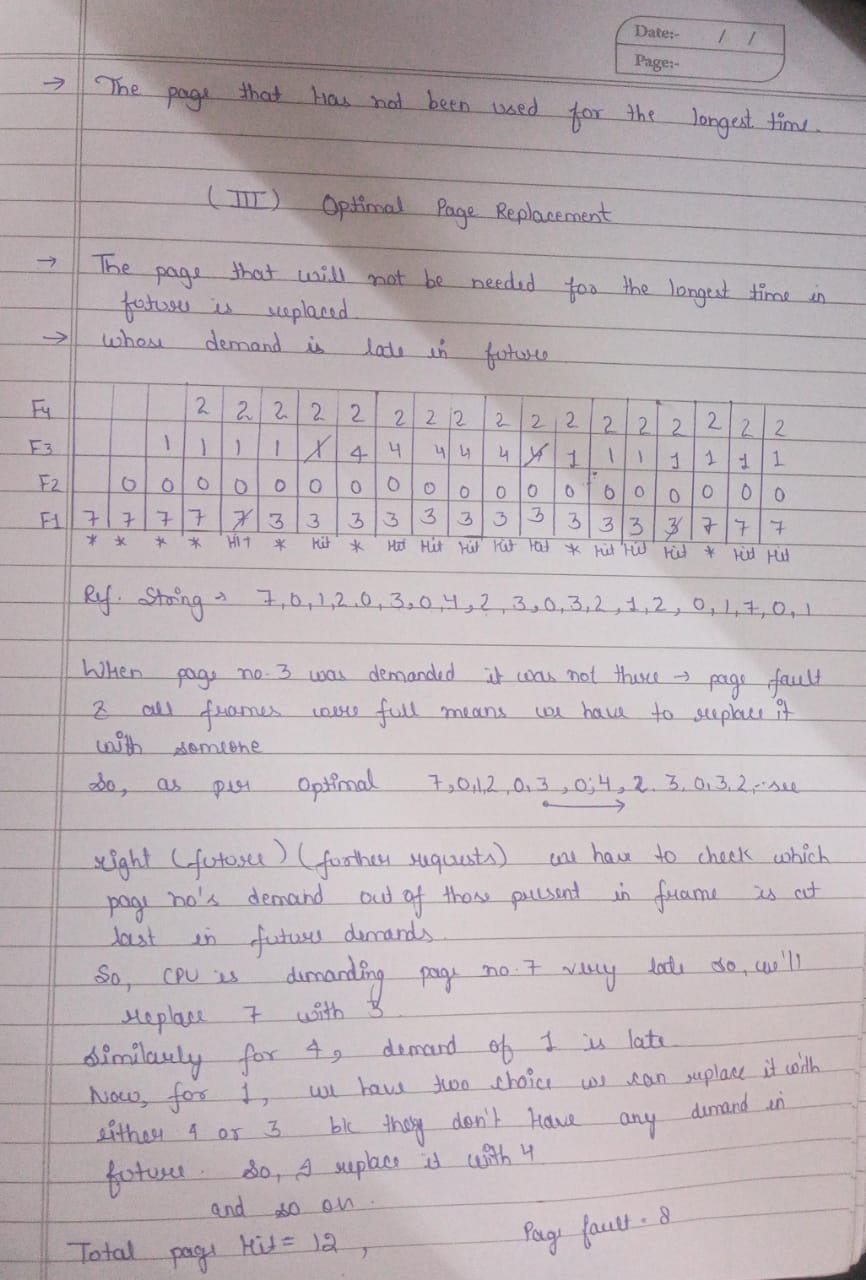 Date:- / /
Page:-
→ The page that has not been used for the longest time.
(III) Optimal Page Replacement
→ The page that will not be needed for the longest time in
future is replaced
→ whose demand is late in future
F4 2 2 2 2 2 2 2 2 2 2 2 2 2 2 2 2 2
F3 1 1 1 1 1 4 4 4 4 4 4 1 1 1 1 1 1 1
F2 0 0 0 0 0 0 0 0 0 0 0 0 0 0 0 0 0 0 0
F1 7 7 7 7 7 3 3 3 3 3 3 3 3 3 3 3 3 7 7 7
* * * * Hit * Hit * Hit Hit Hit Hit Hit * Hit Hit Hit * Hit Hit
Ref. String → 7,0,1,2,0,3,0,4,2,3,0,3,2,1,2,0,1,7,0,1
When page no. 3 was demanded it was not there → page fault
& all frames were full means we have to replace it
with someone
So, as per Optimal 7,0,1,2,0,3,0,4,2,3,0,3,2,-- see
right (future) (further requests) we have to check which
page no's demand out of those present in frame is at
last in future demands
So, CPU is demanding page no. 7 very late so, we'll
replace 7 with 3
Similarly for 4, demand of 1 is late
Now, for 1, we have two choice we can replace it with
either 4 or 3 b/c they don't have any demand in
future. So, I replace it with 4
and so on.
Total page Hit = 12, Page fault = 8